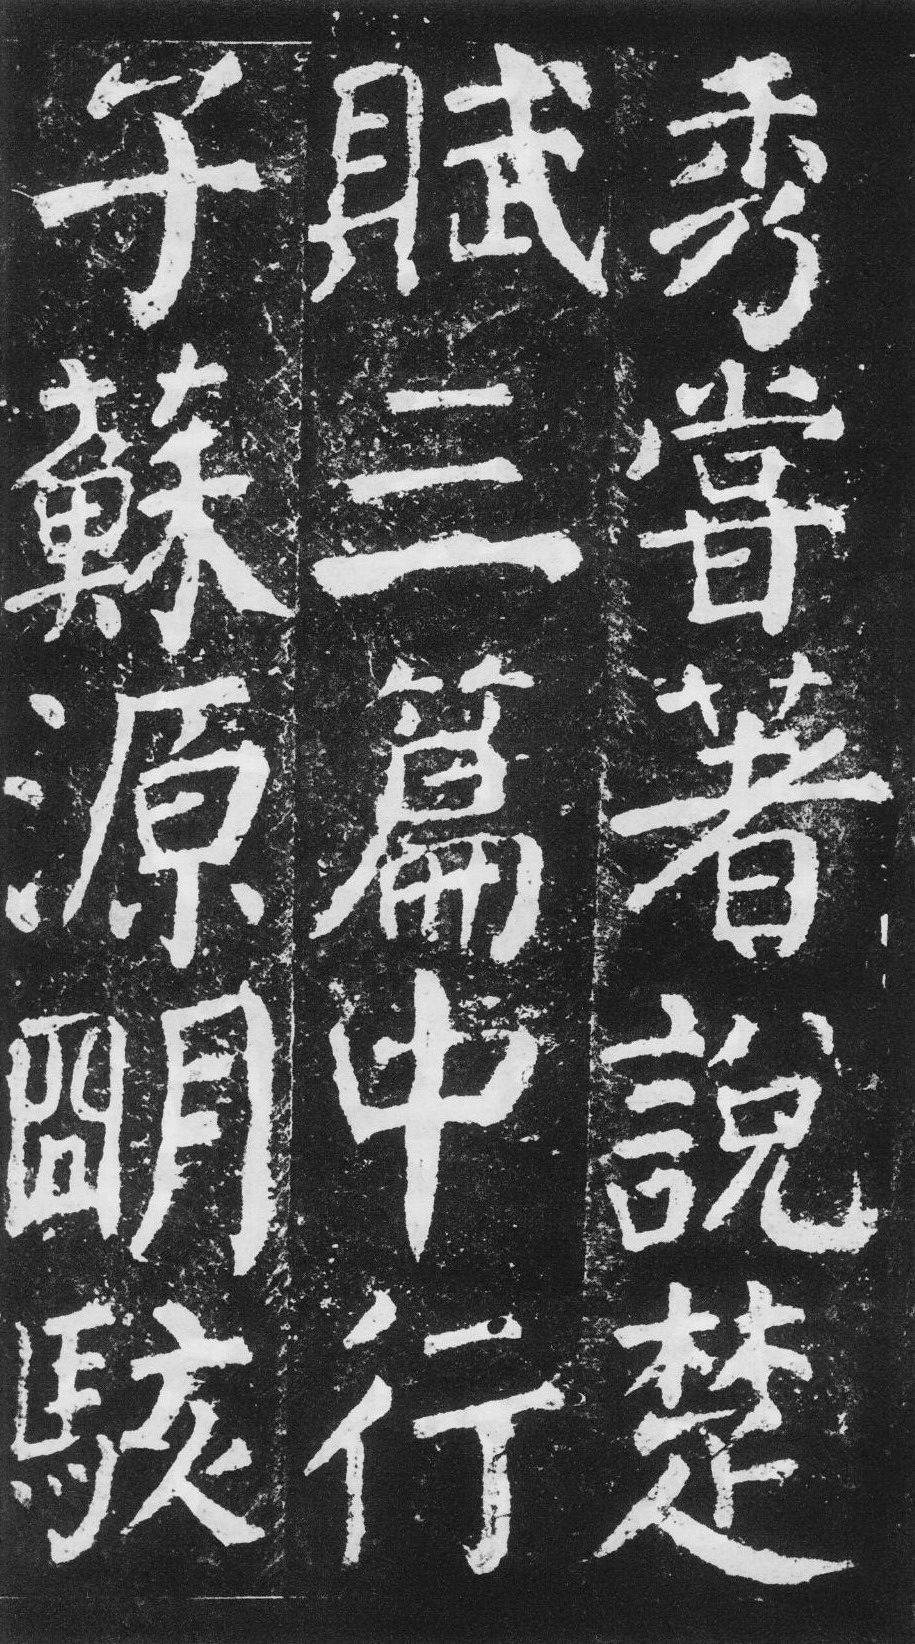 秀嘗著說楚
賦三篇中行
子蘇源朙駭